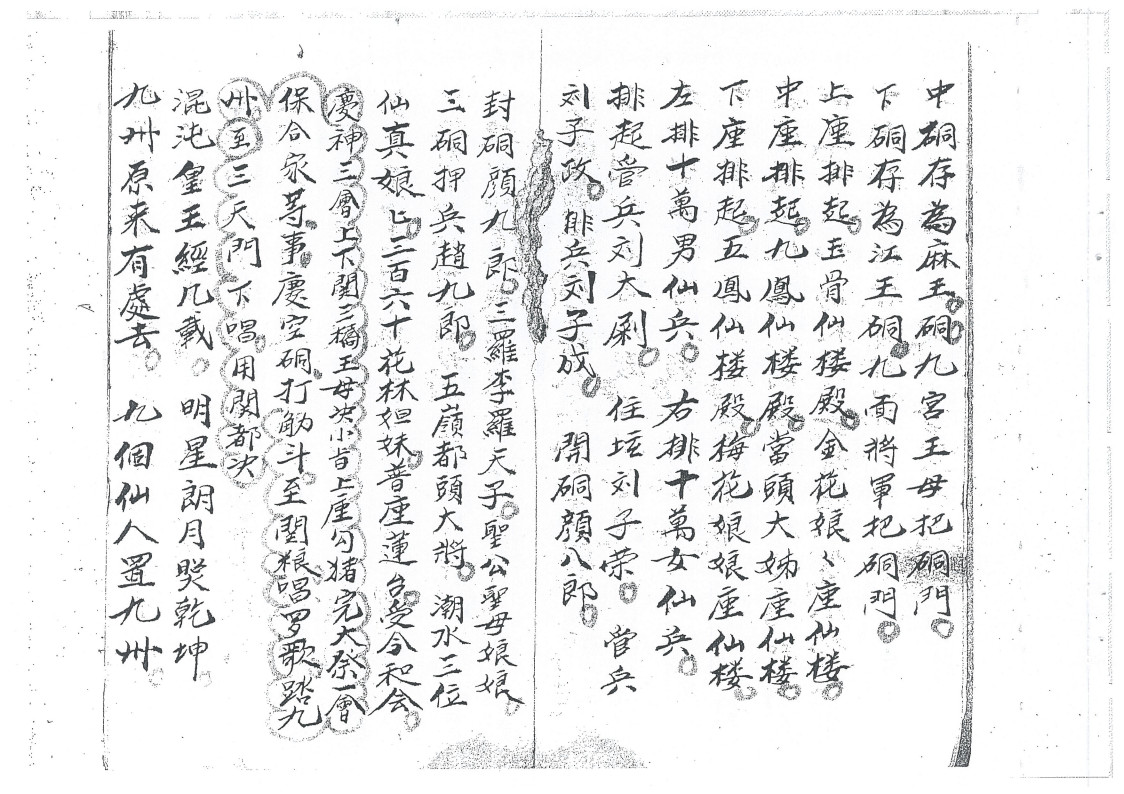 中硐存為麻王。硐九宮王母把硐門。
下硐存為江王硐。九面將軍把硐門。
上座排起玉骨仙楼殿。金花娘〻座仙楼。
中座排起九鳳仙楼殿。當頭大姊座仙楼。
下座排起五鳳仙楼殿。梅花娘娘座仙楼。
左排十萬男仙兵。右排十萬女仙兵。
排起管兵刘大剛。住垓刘子荣。管兵
刘子政。排兵刘子成。開硐顔八郎。
封硐顔九郎。三羅李羅天子。聖公聖母娘娘。
三硐押兵趙九郎。五嶺都頭大將。潮水三位
仙真娘上。三百六十花林姐妹。普座蓮台受今和会。
慶神三會上下関三橋王母决小旨上座勾猪完大祭一會
保合家等事慶空硐打觔斗至関粮唱罗歌踏九
卅至三天門下唱用関都决
混沌皇王經几載。明星朗月煚乾坤。
九卅原来有處去。九個仙人置九卅。